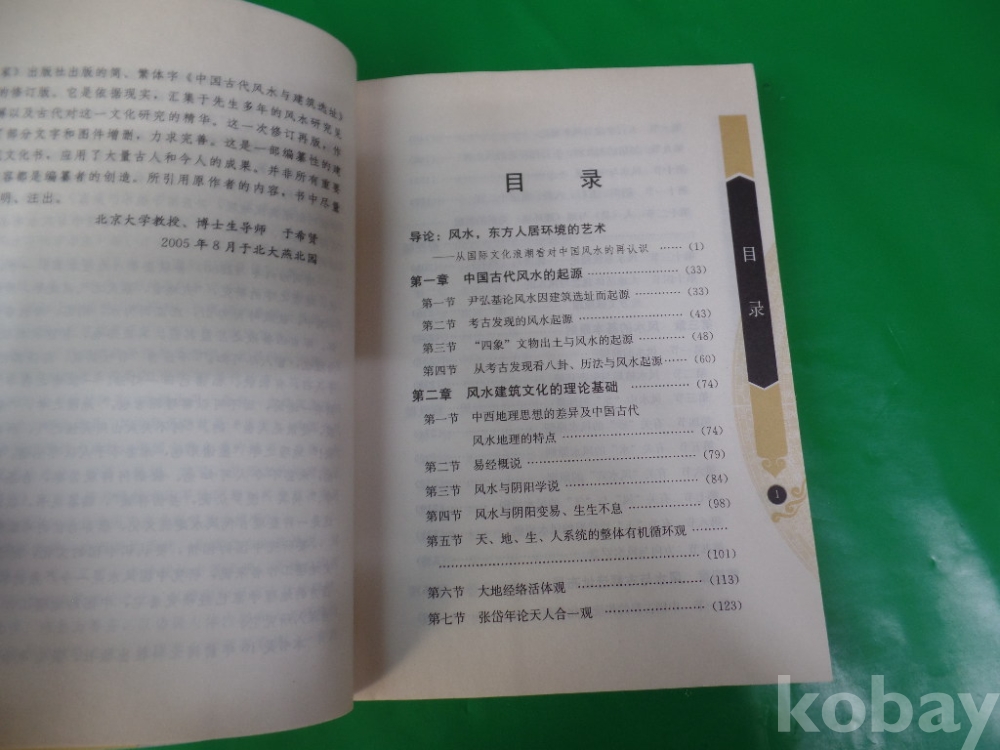 》出版社出版的简、繁体字《中国古代风水与建筑选址》
的修订版。它是依据现实，汇集于先生多年的风水研究见
解以及古代对这一文化研究的精华。这一次修订再版，作
了部分文字和图件增删，力求完善。这是一部编纂性的建
筑文化书，应用了大量古人和今人的成果。并非所有重要
容都是编纂者的创造，所引用原作者的内容，书中尽量
明、注出。
北京大学教授、博士生导师 于希贤
2005 年 8 月于北大燕北园
目 录
导论：风水，东方人居环境的艺术
——从国际文化浪潮看对中国风水的再认识 ……（1）
第一章 中国古代风水的起源 ……………（33）
第一节 尹弘基论风水因建筑选址而起源 …………（33）
第二节 考古发现的风水起源 ……………………（43）
第三节 “四象”文物出土与风水的起源 …………（48）
第四节 从考古发现看八卦、历法与风水起源……（60）
第二章 风水建筑文化的理论基础 …………（74）
第一节 中西地理思想的差异及中国古代
风水地理的特点 …………………（74）
第二节 易经概说 …………………………（79）
第三节 风水与阴阳学说 ……………………（84）
第四节 风水与阴阳变易、生生不息 ……………（98）
第五节 天、地、生、人系统的整体有机循环观 ………
……………………………………（101）
第六节 大地经络活体观 …………………（113）
第七节 张岱年论天人合一观 ………………（123）
目
录
1
kobay